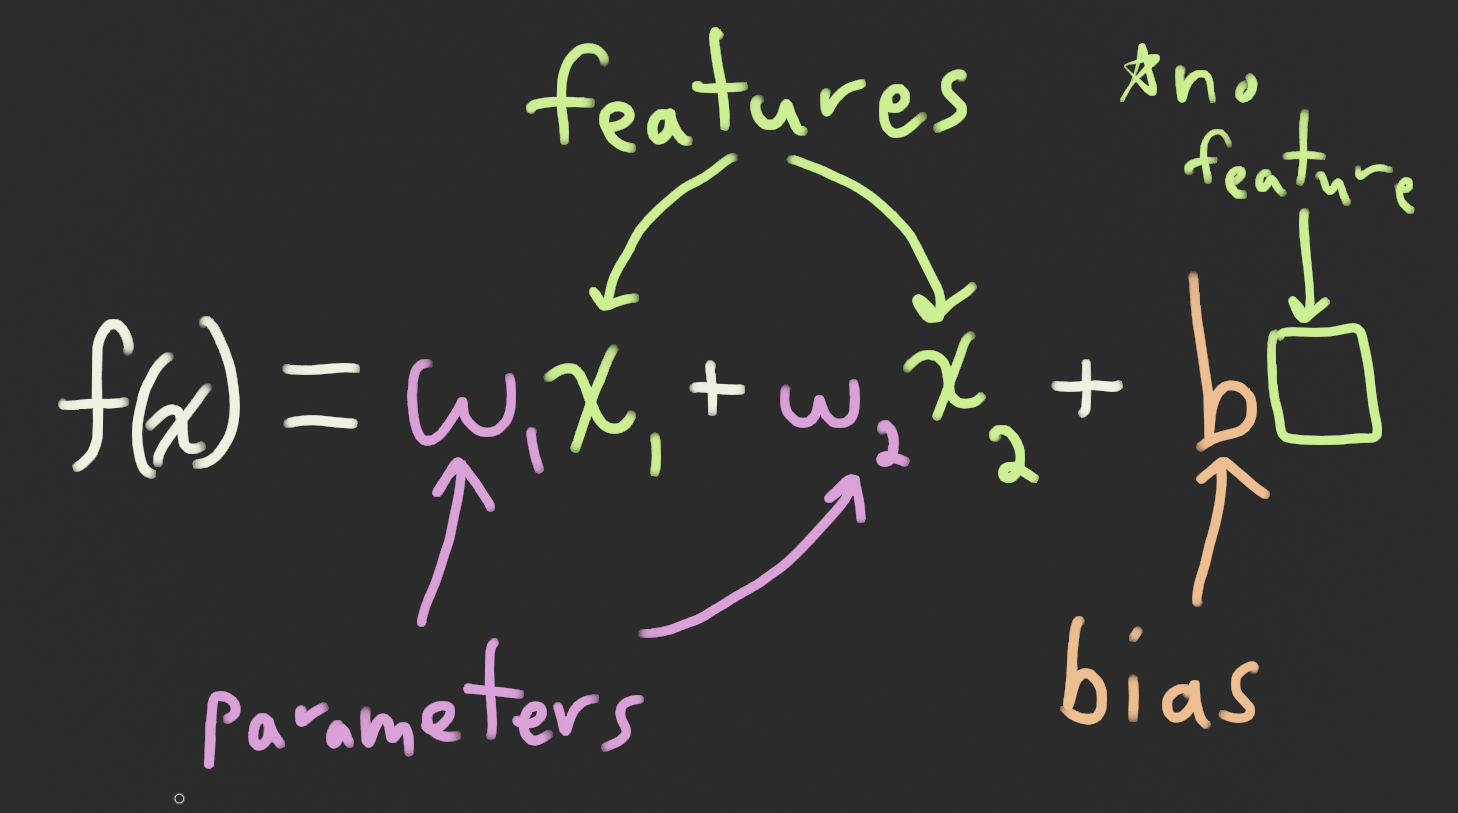 features
*no
feature
f(x) = w₁x₁ + w₂x₂ + b
parameters
bias